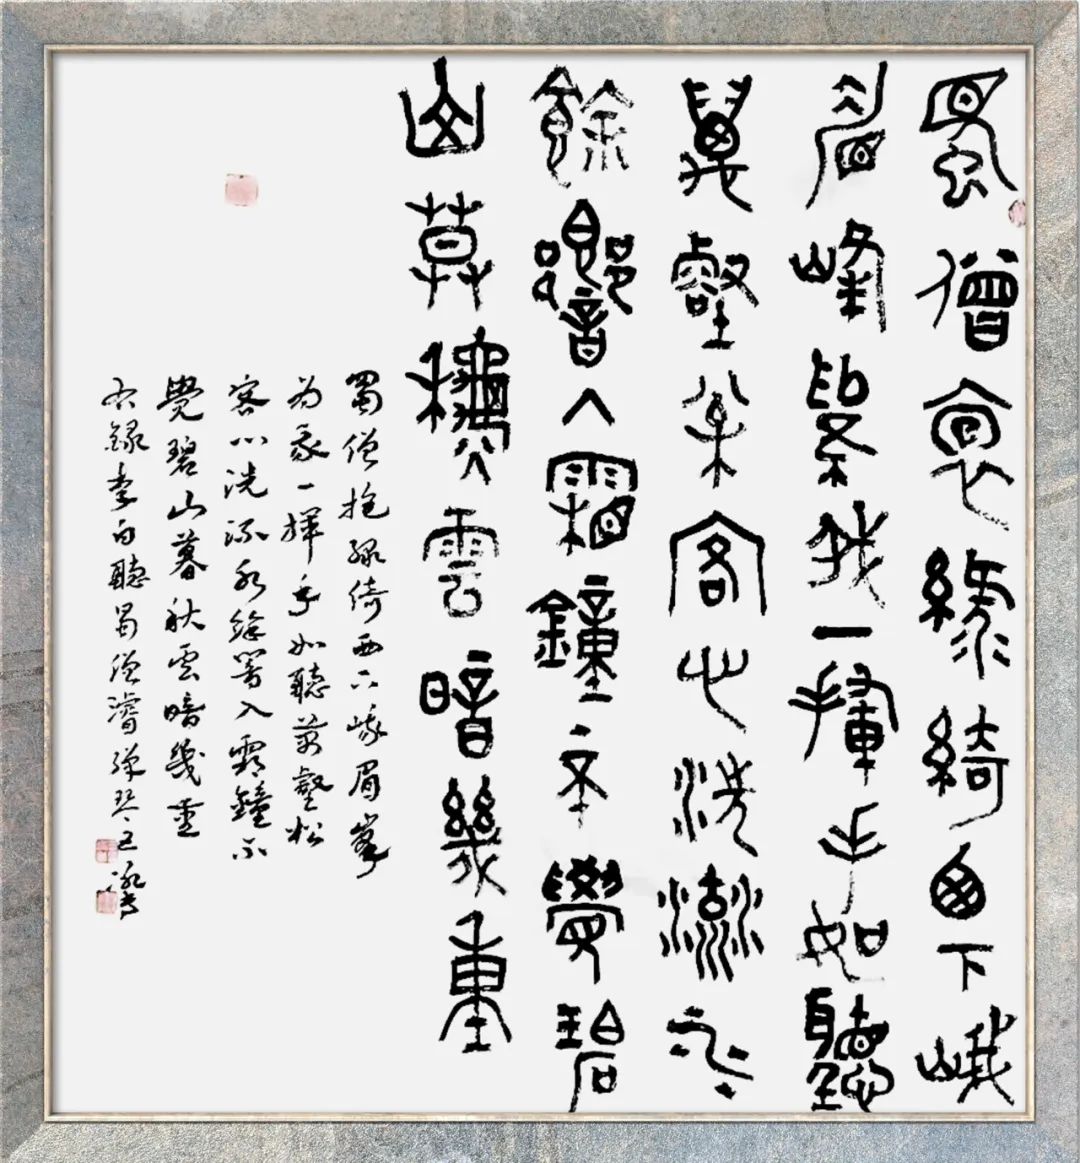 蜀僧抱綠綺西下峨
眉峰為我一揮手如聽
萬壑松客心洗流水
餘響入霜鐘不覺碧
山暮穐雲暗幾重
蜀僧抱綠綺西下峨眉峯
为我一揮手如聽萬壑松
客心洗流水餘響入霜鐘不
覺碧山暮秋雲暗幾重
右録李白聽蜀僧濬弹琴